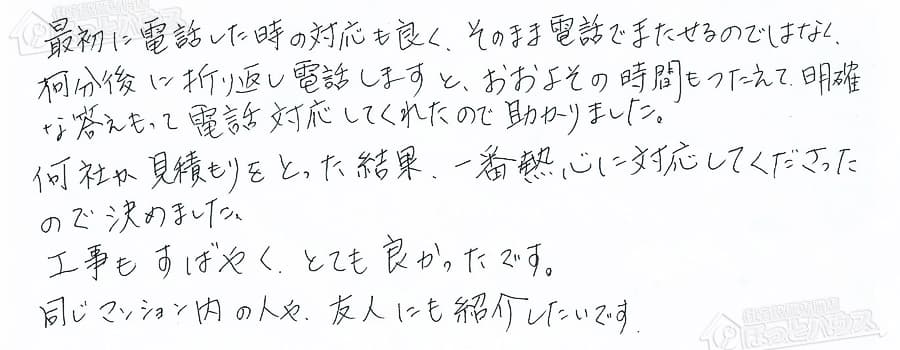 最初に電話した時の対応も良く、そのまま電話でまたせるのではなく、
何分後に折り返し電話しますと、おおよその時間もつたえて、明確
な答えもって電話対応してくれたので助かりました。
何社か見積もりをとった結果、一番熱心に対応してくださった
ので決めました。
工事もすばやく、とても良かったです。
同じマンション内の人や、友人にも紹介したいです。
ほっとハウス